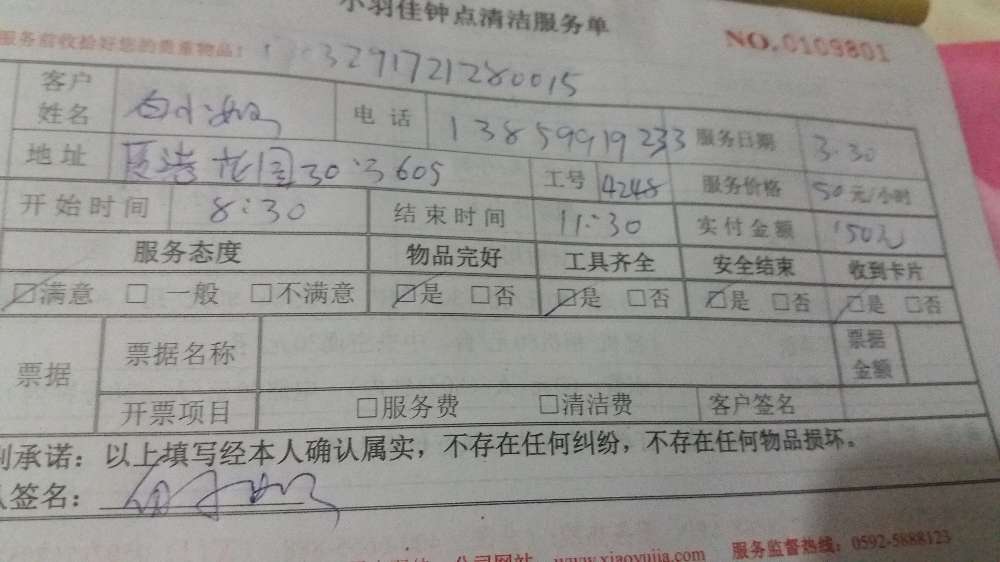 小羽佳钟点清洁服务单
服务前收拾好您的贵重物品! NO.0109801
03291721280015
客户姓名 电话 13859919233 服务日期 3.30
地址 花园30:3605 工号 4248 服务价格 50元/小时
开始时间 8:30 结束时间 11:30 实付金额 150元
服务态度 物品完好 工具齐全 安全结束 收到卡片
☑满意 □一般 □不满意 ☑是 □否 ☑是 □否 ☑是 □否 ☑是 □否
票据 票据名称 票据金额
开票项目 □服务费 □清洁费 客户签名
承诺:以上填写经本人确认属实,不存在任何纠纷,不存在任何物品损坏。
签名:
公司网站 www.xiaoyujia.com 服务监督热线:0592-5888123